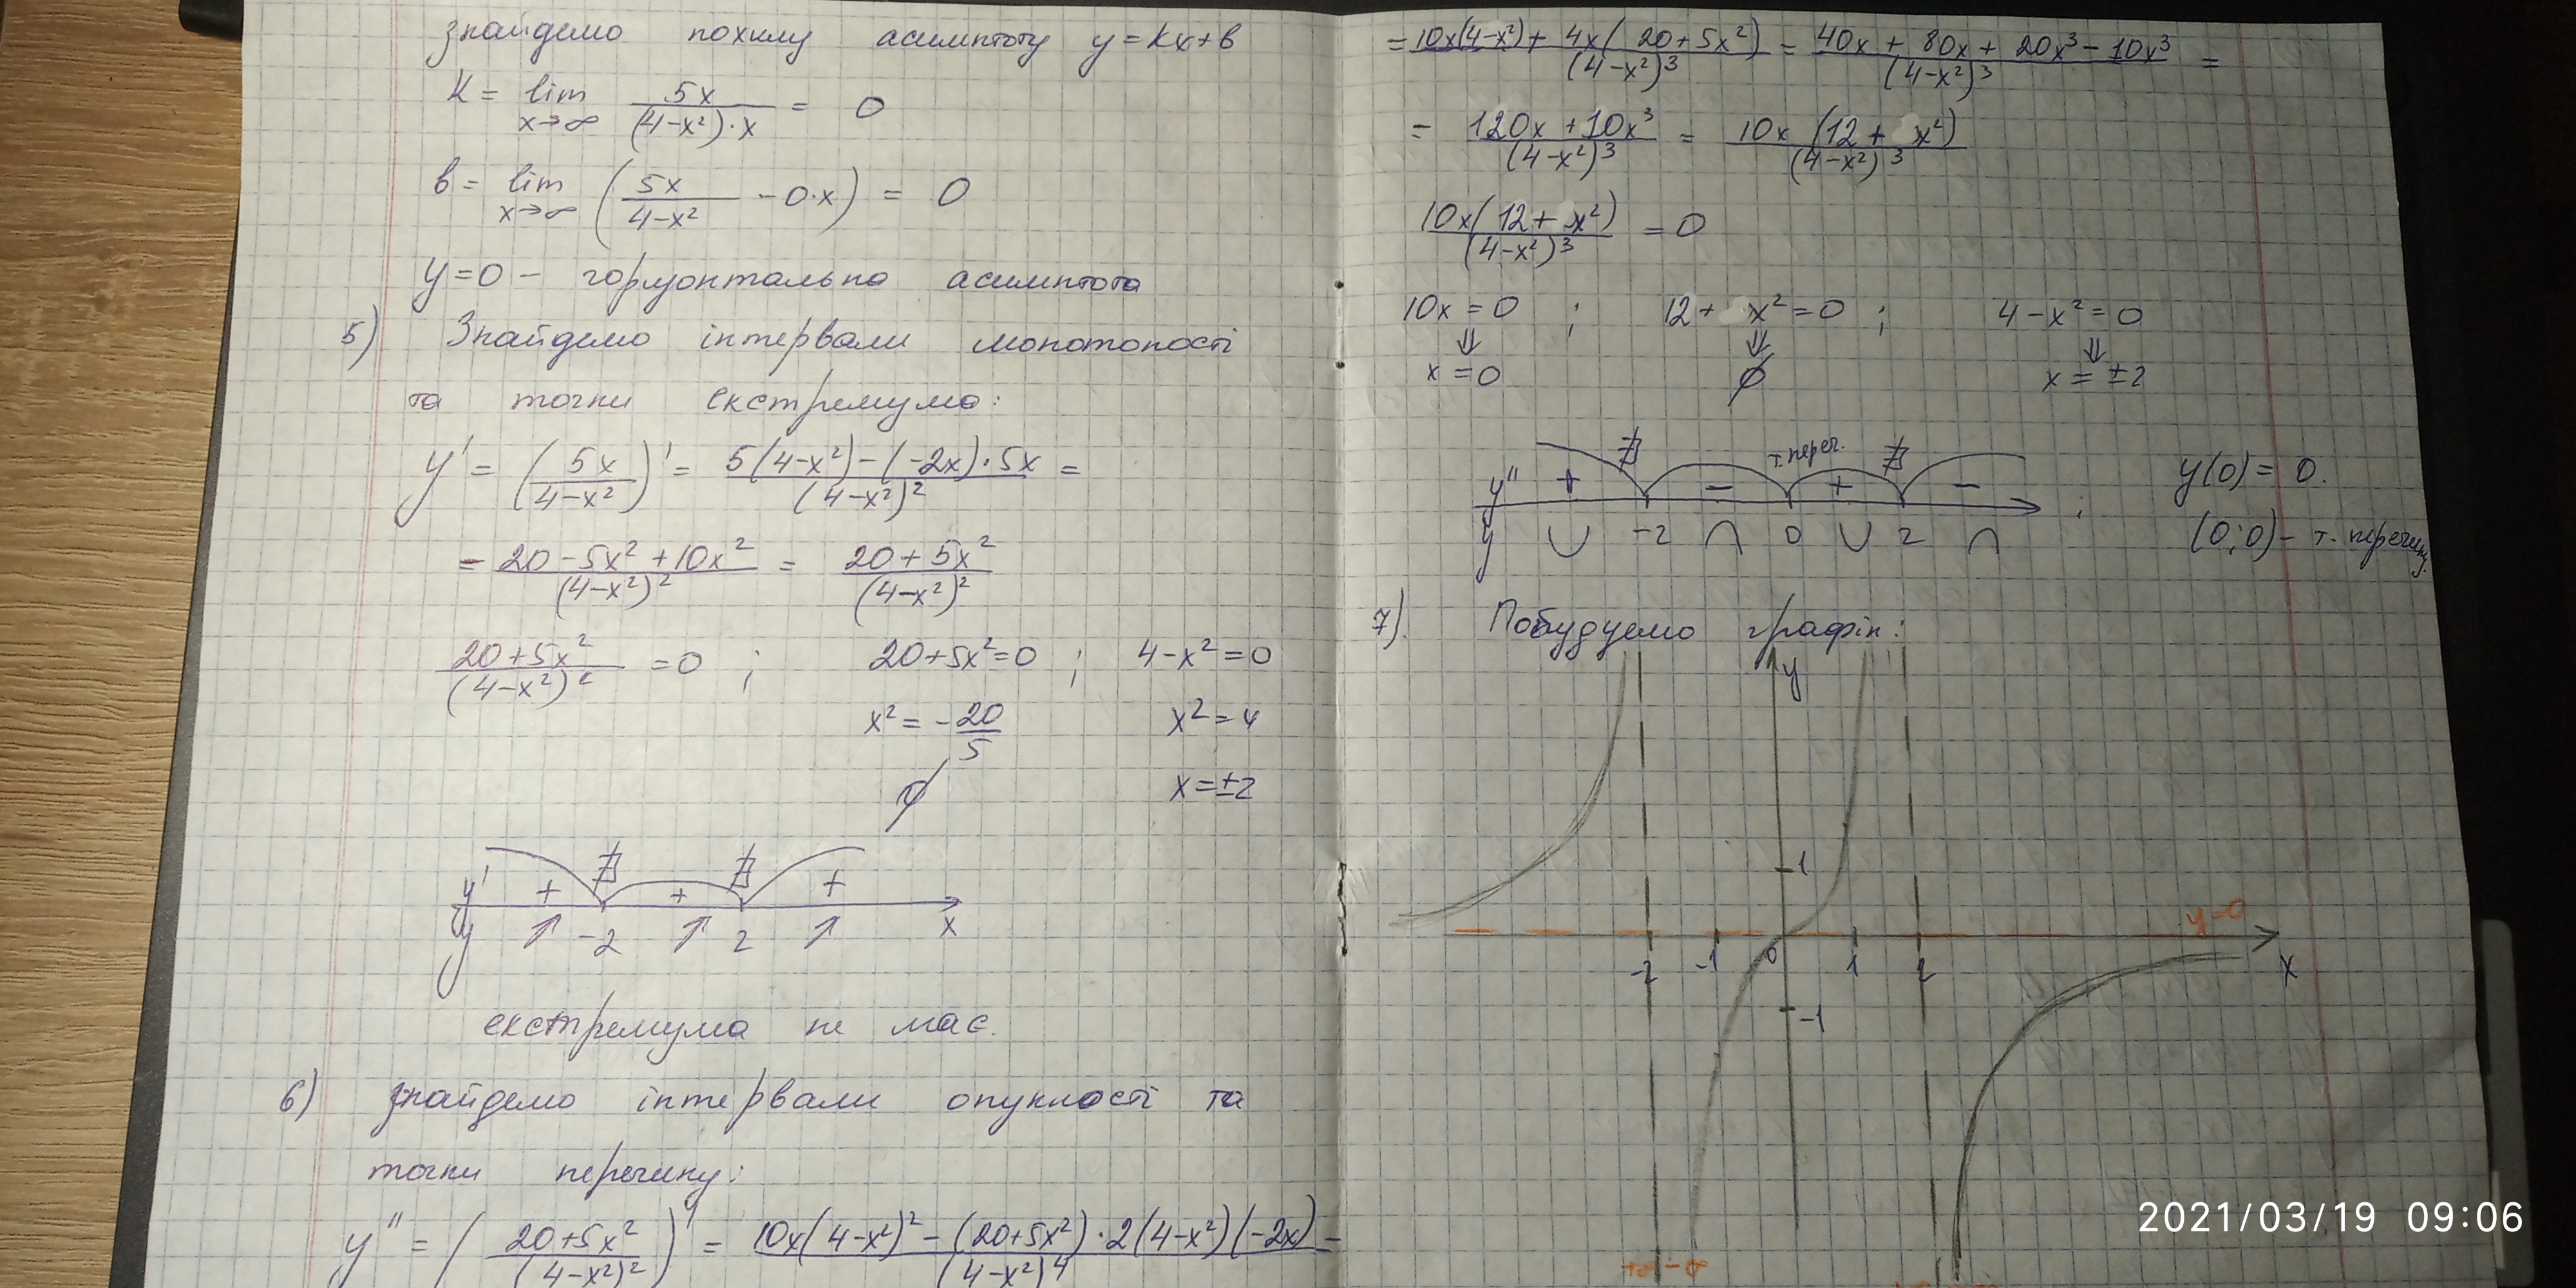 знайдемо похилу асимптоту y=kx+b
K = lim x→∞ 5x/((4-x²)·x) = 0
b = lim x→∞ (5x/(4-x²) - 0·x) = 0
y=0 - горизонтальна асимптота
5) Знайдемо інтервали монотоності
та точки екстремума:
y' = (5x/(4-x²))' = (5(4-x²)-(-2x)·5x)/(4-x²)² =
= (20-5x²+10x²)/(4-x²)² = (20+5x²)/(4-x²)²
(20+5x²)/(4-x²)² = 0 ; 20+5x²=0 ; 4-x²=0
x² = -20/5 x²=4
∅ x=±2
∄ ∄
y' + + +
y ↗ -2 ↗ 2 ↗ x
екстремума не має.
6) знайдемо інтервали опуклості та
точки перегину:
y'' = ((20+5x²)/(4-x²)²)' = (10x(4-x²)²-(20+5x²)·2(4-x²)(-2x))/(4-x²)⁴ =
= (10x(4-x²)+4x(20+5x²))/(4-x²)³ = (40x+80x+20x³-10x³)/(4-x²)³ =
= (120x+10x³)/(4-x²)³ = 10x(12+x²)/(4-x²)³
10x(12+x²)/(4-x²)³ = 0
10x=0 ; 12+x²=0 ; 4-x²=0
⇓ ⇓ ⇓
x=0 ∅ x=±2
∄ т.перег. ∄
y'' + - + - ;
y ∪ -2 ∩ 0 ∪ 2 ∩
y(0)=0.
(0;0)- т. перегину.
7). Побудуємо графік:
y
1
y=0
-2 -1 0 1 2 x
-1
2021/03/19 09:06